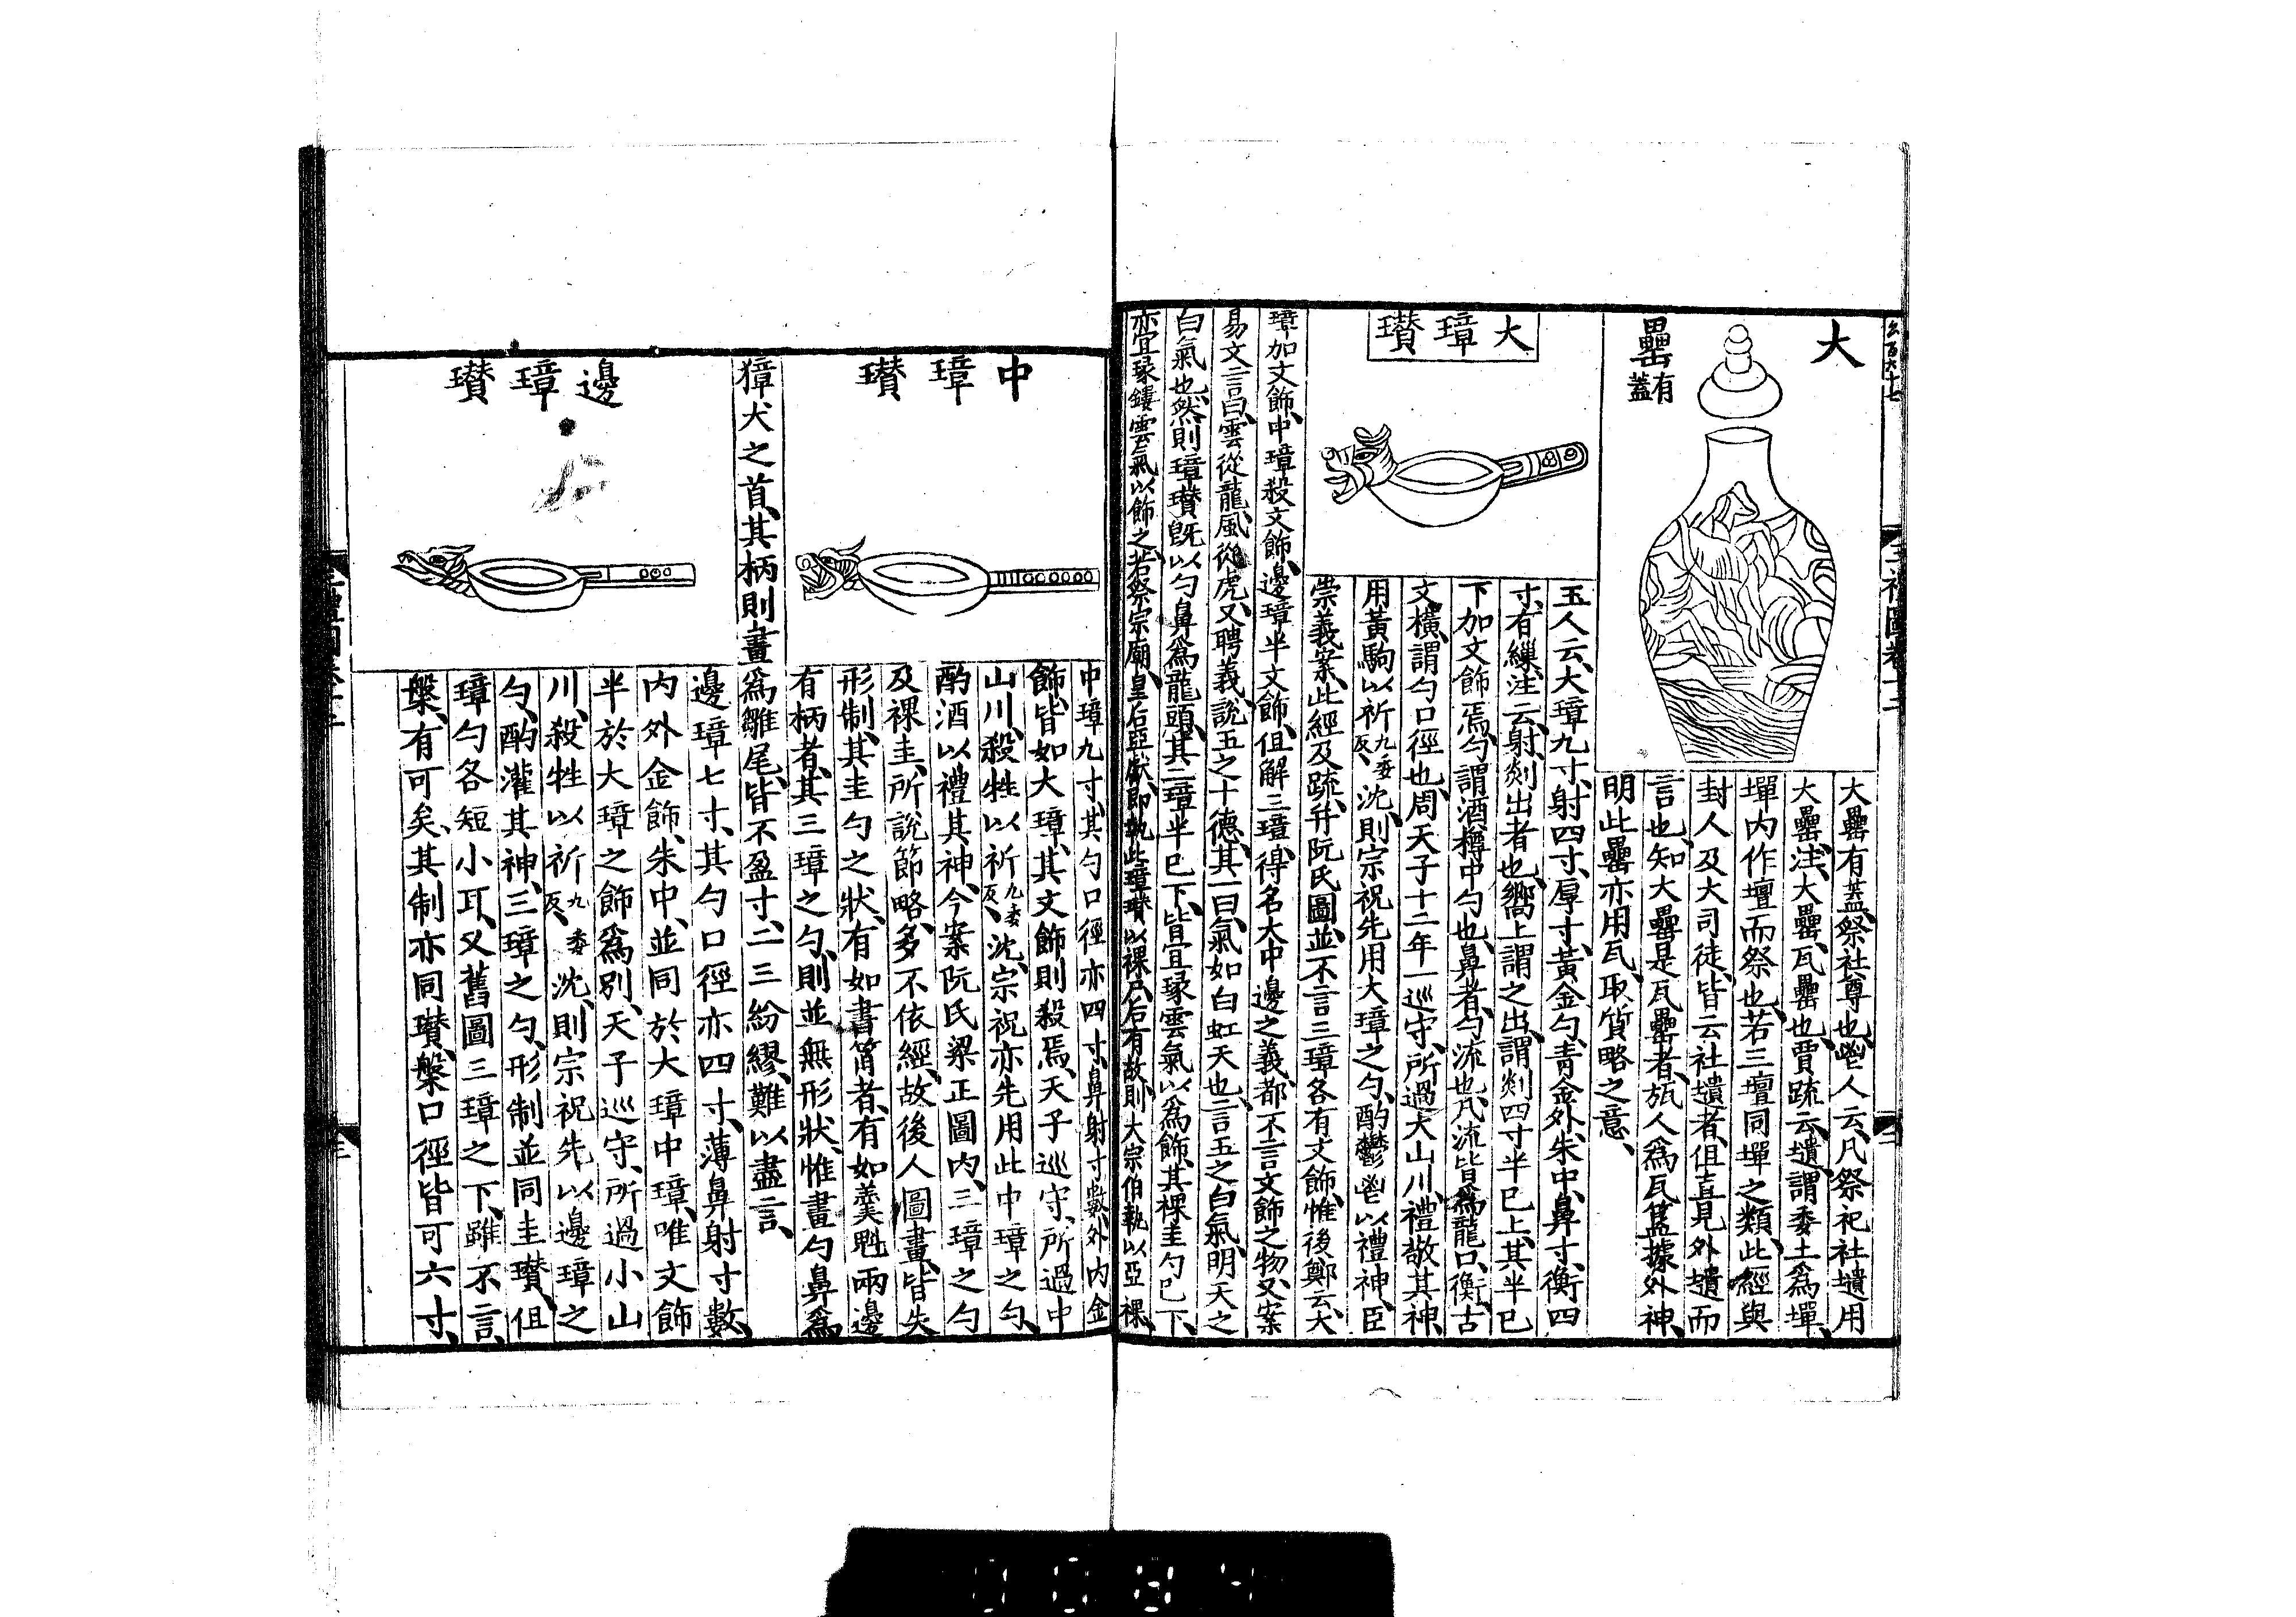 大
罍有蓋
大罍有蓋、祭社尊也、鬯人云、凡祭祀社壝用
大罍、注、大罍、瓦罍也、賈疏云、壝謂委土爲墠、
墠内作壇而祭也、若三壇同墠之類、此經與
封人及大司徒、皆云社壝者、但直見外壝而
言也、知大罍是瓦罍者、瓬人爲瓦簋、據外神、
明此罍亦用瓦、取質略之意、
大璋瓚
玉人云、大璋九寸、射四寸、厚寸、黃金勺、青金外、朱中、鼻寸、衡四
寸、有繅、注云、射、剡出者也、嚮上謂之出、謂剡四寸半已上、其半已
下加文飾焉、勺謂酒樽中勺也、鼻者、勺流也、凡流皆爲龍口、衡、古
文橫、謂勺口徑也、周天子十二年一巡守、所過大山川、禮敬其神、
用黃駒以祈九委反、沈、則宗祝先用大璋之勺、酌鬱鬯以禮神、臣
崇義案、此經及疏、并阮氏圖、並不言三璋各有文飾、惟後鄭云、大
璋加文飾、中璋殺文飾、邊璋半文飾、但解三璋、得名大中邊之義、都不言文飾之物、又案
易文言曰、雲從龍、風從虎、又聘義說玉之十德、其一曰、氣如白虹天也、言玉之白氣、明天之
白氣也、然則璋瓚旣以勺鼻爲龍頭、其二璋半已下、皆宜琢雲氣以爲飾、其祼圭勺已下、
亦宜琢鏤雲氣以飾之、若祭宗廟、皇后亞獻、即執此璋瓚以祼尸、后有故、則大宗伯執以亞祼、
中璋瓚
中璋九寸、其勺口徑亦四寸、鼻射寸數、外内金
飾、皆如大璋、其文飾則殺焉、天子巡守、所過中
山川、殺牲以祈九委反、沈、宗祝亦先用此中璋之勺、
酌酒以禮其神、今案阮氏梁正圖内、三璋之勺
及祼圭、所說節略、多不依經、故後人圖畫、皆失
形制、其圭勺之狀、有如書筩者、有如羹魁、兩邊
有柄者、其三璋之勺、則並無形狀、惟畫勺鼻爲
獐犬之首、其柄則畫爲雛尾、皆不盈寸、二三紛繆、難以盡言、
邊璋瓚
邊璋七寸、其勺口徑亦四寸、薄鼻射寸數、
内外金飾、朱中、並同於大璋中璋、唯文飾
半於大璋之飾爲别、天子巡守、所過小山
川、殺牲以祈九委反、沈、則宗祝先以邊璋之
勺、酌灌其神、三璋之勺、形制並同圭瓚、但
璋勺各短小耳、又舊圖三璋之下、雖不言
槃、有可矣、其制亦同瓚、槃口徑皆可六寸、